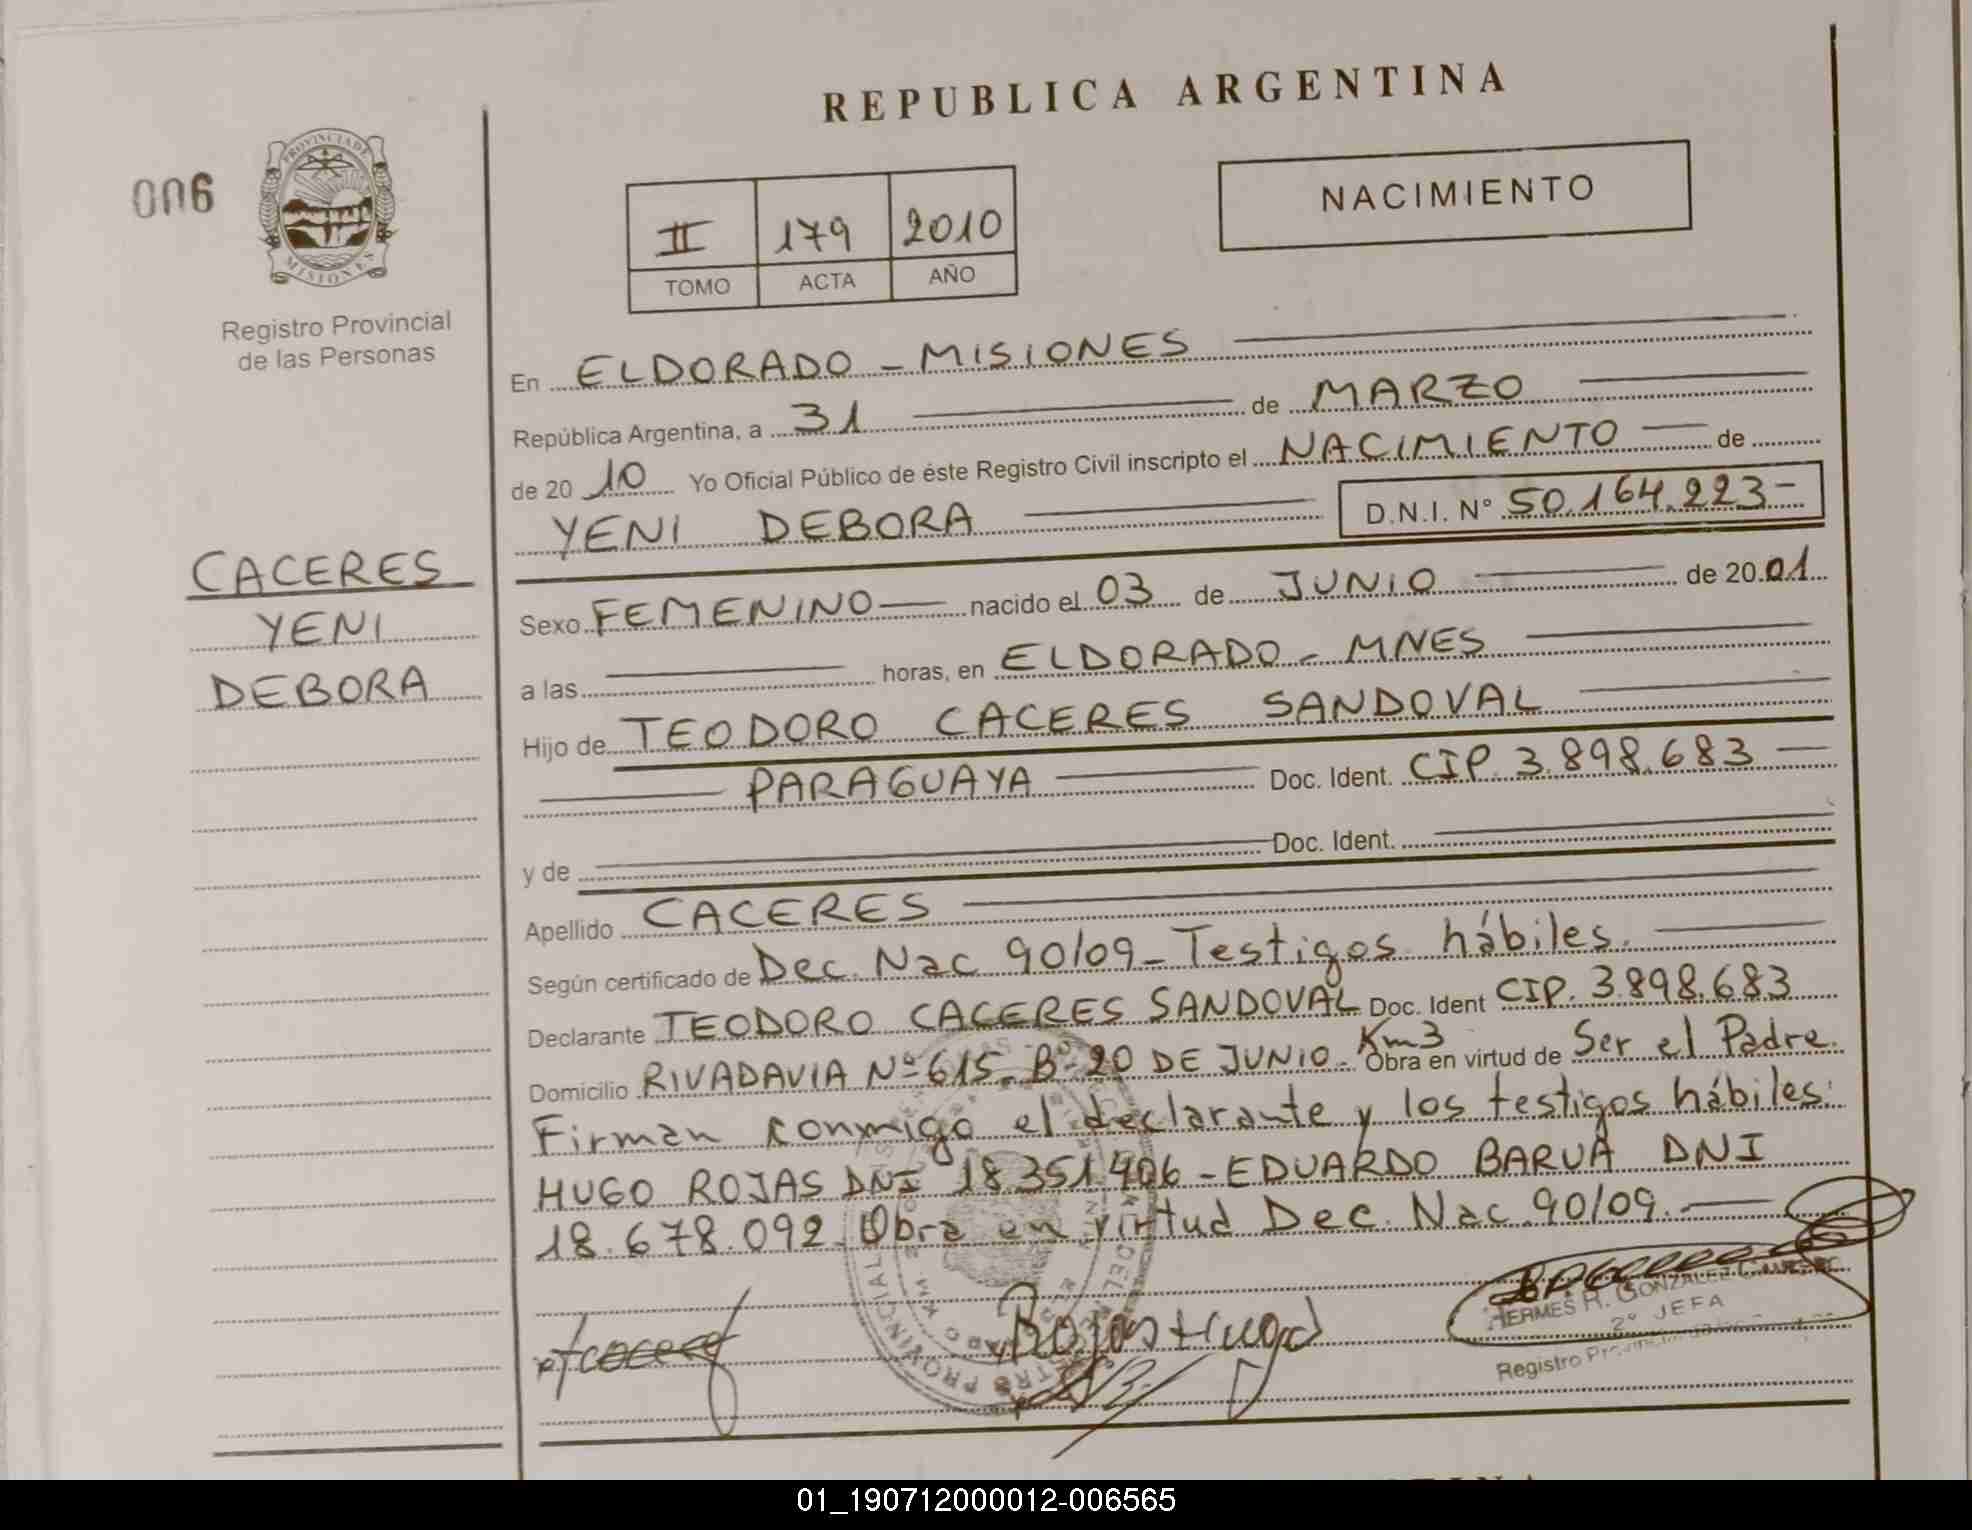 REPUBLICA ARGENTINA
006
PROVINCIA DE
MISIONES
Registro Provincial
de las Personas
NACIMIENTO
II 179 2010
TOMO ACTA AÑO
CACERES
YENI
DEBORA
En ELDORADO - MISIONES
República Argentina, a 31 de MARZO
de 20 10 Yo Oficial Público de éste Registro Civil inscripto el NACIMIENTO de
YENI DEBORA D.N.I. Nº 50.164.223-
Sexo FEMENINO nacido el 03 de JUNIO de 20.01
a las horas, en ELDORADO - MNES
Hijo de TEODORO CACERES SANDOVAL
PARAGUAYA Doc. Ident. CIP. 3.898.683
y de Doc. Ident.
Apellido CACERES
Según certificado de Dec. Nac 90/09 - Testigos hábiles.
Declarante TEODORO CACERES SANDOVAL Doc. Ident CIP. 3.898.683
Domicilio RIVADAVIA Nº 615. Bº 20 DE JUNIO - Km3 Obra en virtud de Ser el Padre.
Firman conmigo el declarante y los testigos hábiles:
HUGO ROJAS DNI 18.351.406 - EDUARDO BARUA DNI
18.678.092. Obra en virtud Dec. Nac. 90/09.
Rojas Hugo
HERMES R. GONZALEZ
2º JEFA
Registro
01_190712000012-006565